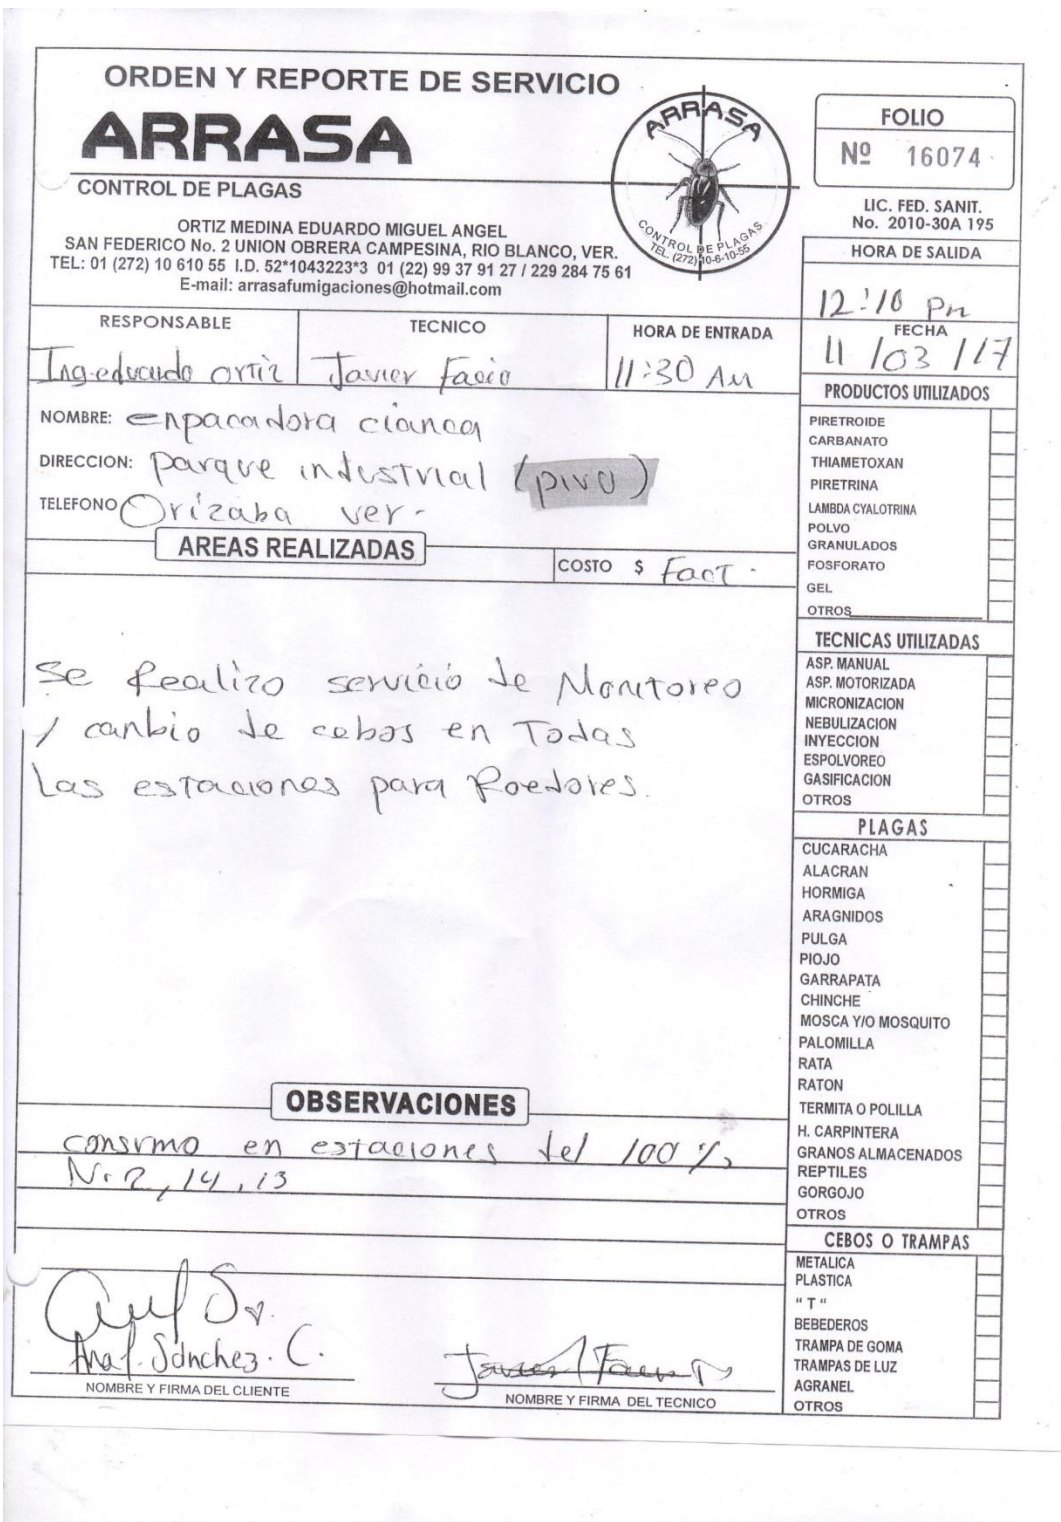 ORDEN Y REPORTE DE SERVICIO
ARRASA
CONTROL DE PLAGAS
ORTIZ MEDINA EDUARDO MIGUEL ANGEL
SAN FEDERICO No. 2 UNION OBRERA CAMPESINA, RIO BLANCO, VER.
TEL: 01 (272) 10 610 55 I.D. 52*1043223*3 01 (22) 99 37 91 27 / 229 284 75 61
E-mail: arrasafumigaciones@hotmail.com
ARRASA
CONTROL DE PLAGAS
TEL. (272) 10-6-10-55
FOLIO
Nº 16074
LIC. FED. SANIT.
No. 2010-30A 195
HORA DE SALIDA
12:10 pm
RESPONSABLE
Ing.eduardo ortiz
TECNICO
Javier Facio
HORA DE ENTRADA
11:30 AM
FECHA
11/03/17
NOMBRE: enpacadora cianca
DIRECCION: parque industrial (pivo)
TELEFONO Orizaba ver.
AREAS REALIZADAS
COSTO $ Fact.
Se Realizo servicio de Monitoreo
y canbio de cebos en Todas
Las estaciones para Roedores.
OBSERVACIONES
consumo en estaciones del 100%
N. 2, 14, 13
Anaf. Sánchez. C.
NOMBRE Y FIRMA DEL CLIENTE
NOMBRE Y FIRMA DEL TECNICO
PRODUCTOS UTILIZADOS
PIRETROIDE
CARBANATO
THIAMETOXAN
PIRETRINA
LAMBDA CYALOTRINA
POLVO
GRANULADOS
FOSFORATO
GEL
OTROS
TECNICAS UTILIZADAS
ASP. MANUAL
ASP. MOTORIZADA
MICRONIZACION
NEBULIZACION
INYECCION
ESPOLVOREO
GASIFICACION
OTROS
PLAGAS
CUCARACHA
ALACRAN
HORMIGA
ARAGNIDOS
PULGA
PIOJO
GARRAPATA
CHINCHE
MOSCA Y/O MOSQUITO
PALOMILLA
RATA
RATON
TERMITA O POLILLA
H. CARPINTERA
GRANOS ALMACENADOS
REPTILES
GORGOJO
OTROS
CEBOS O TRAMPAS
METALICA
PLASTICA
" T "
BEBEDEROS
TRAMPA DE GOMA
TRAMPAS DE LUZ
AGRANEL
OTROS